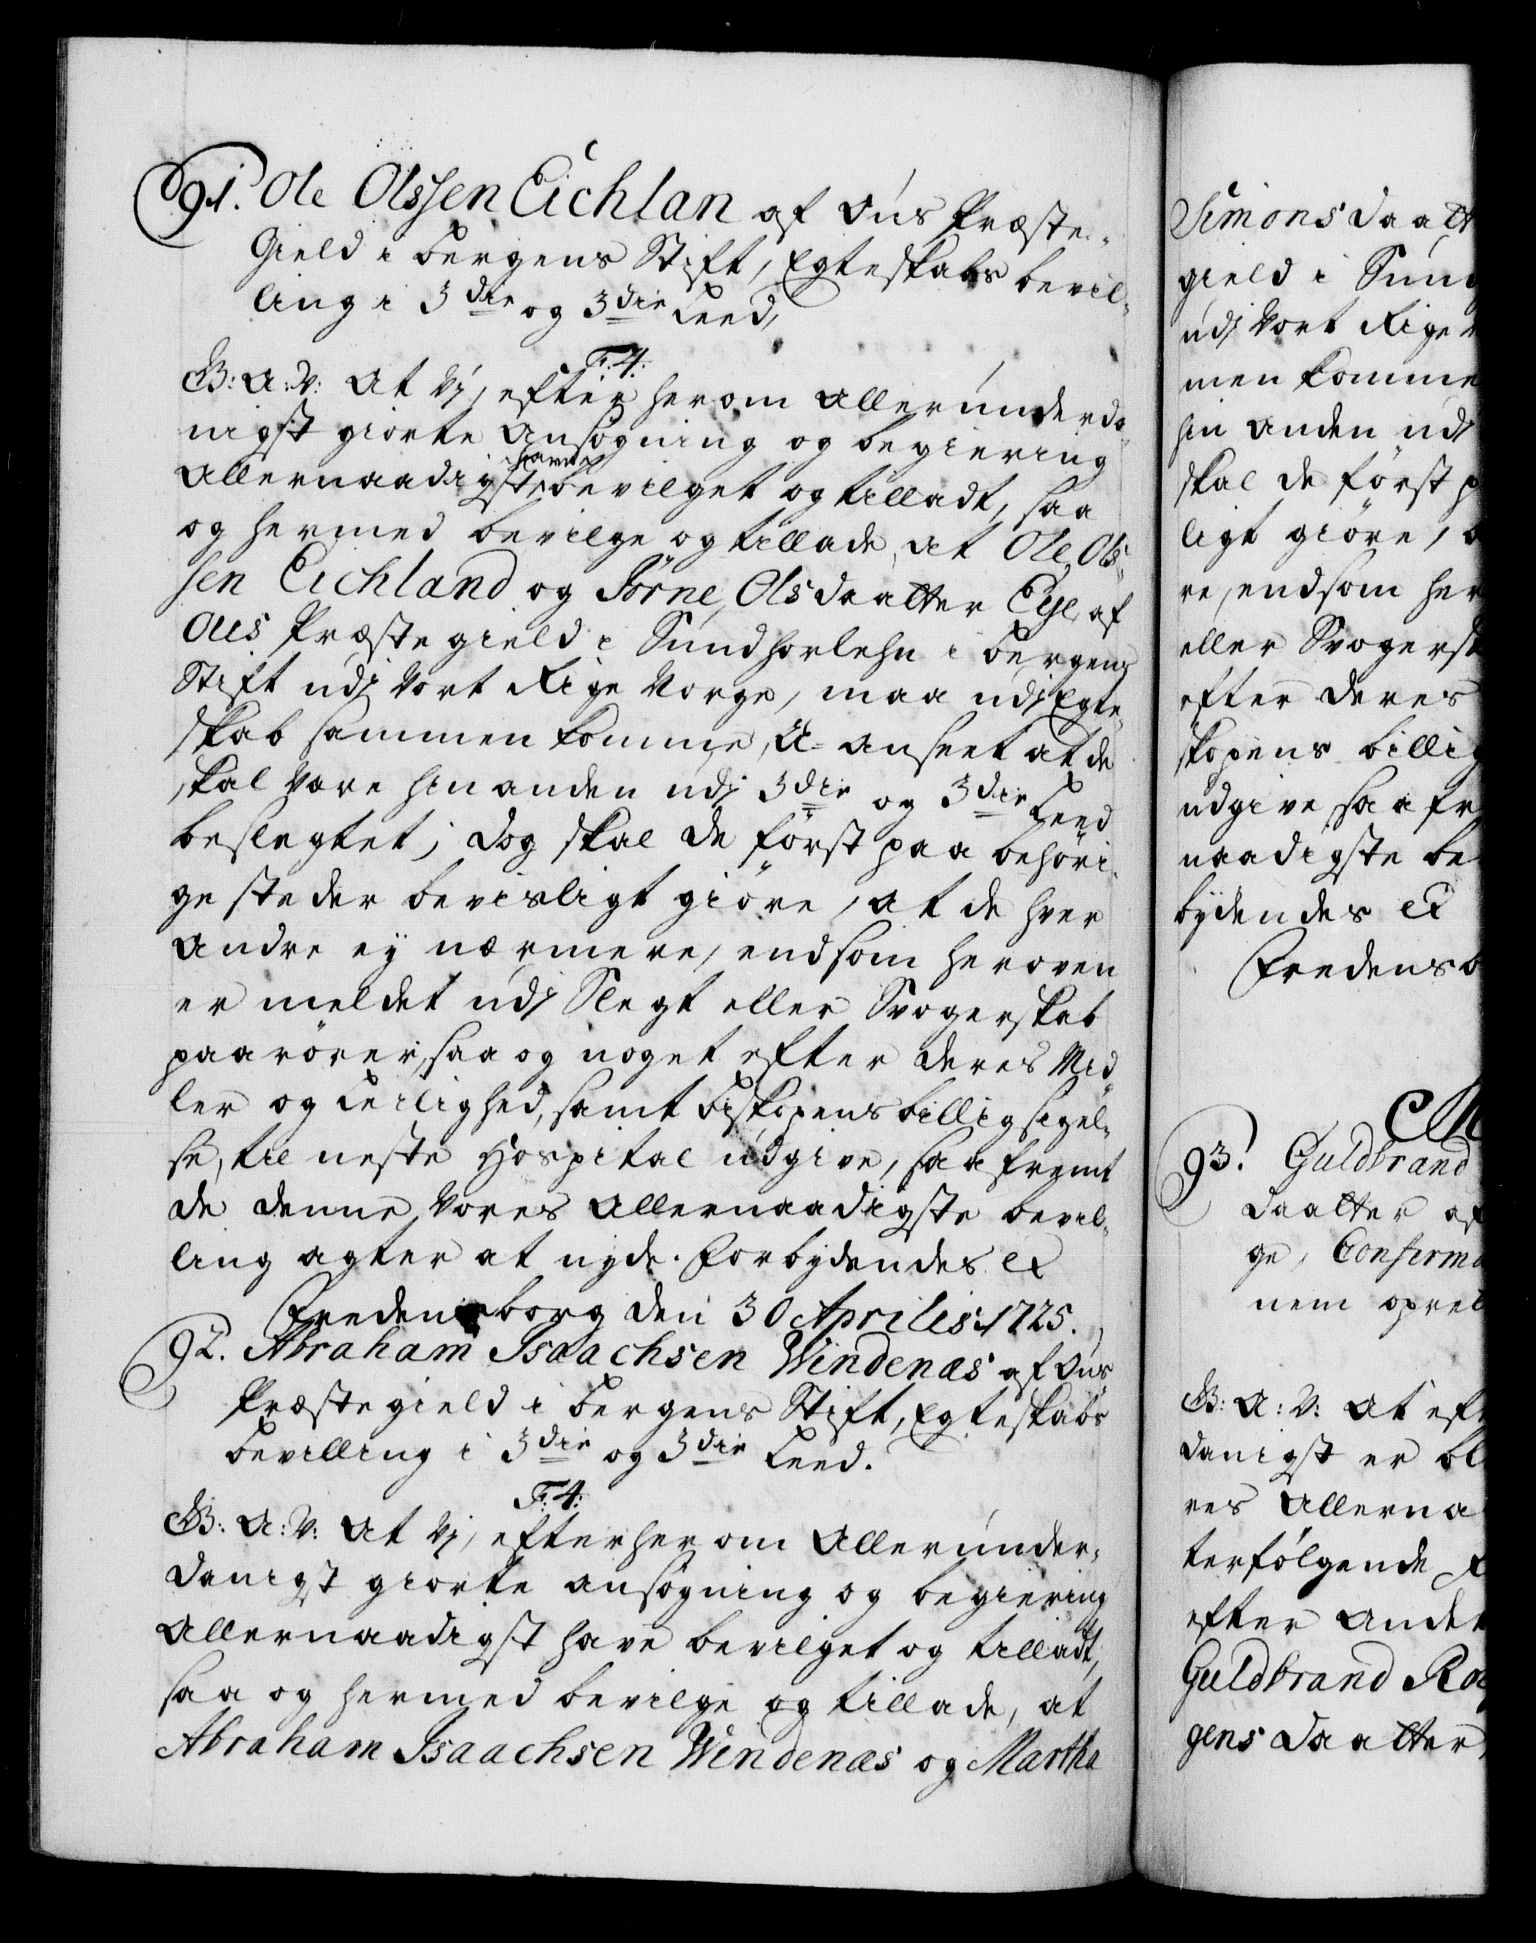 91. Ole Olssen Eichlan af Ous Præste-
Gield i Bergens Stift, Egteskabs bevil-
ling i 3die og 3die Leed,
F: 4:
G: A: V: At Vj, efter herom allerunderda-
nigst giorte Ansøgning og begiering
Allernaadigst have bevilget og tilladt, saa
og hermed bevilge og tillade, at Ole Ols-
sen Eichland og Jörne Olsdaatter Eye, af
Oues Præstegield i Sundhorlehn i Bergens
Stift udj Vort Rige Norge, maa udj Egte-
skab sammen komme, U-anseet at de
skal være hinanden udj 3die og 3die Leed
beslegtet; dog skal de först paa behöri-
ge steder bevisligt giöre, at de hver
andre ey nærmere, end som heroven
er meldet udj Slegt eller Svogerskab
paarörer, saa og noget efter deres Mid-
ler og Leilighed, samt Biskopens billigsigel-
se, til neste Hospital udgive, saa fremt
de denne Vores Allernaadigste bevil-
ling agter at nyde. Forbydendes etc
Fredensborg den 30 Aprilis: 1725.
92. Abraham Isaachsen Windenæs af Ous
Præstegield i Bergens Stift, Egteskabs
bevilling i 3die og 3die Leed.
F: 4:
G: A: V: At Vj, efter herom Allerunder-
danigst giorte ansøgning og begiering
Allernaadigst have bevilget og tilladt,
saa og hermed bevilge og tillade, at
Abraham Isaachsen Windenæs og Martha
Simonsdaatt
gield i Sun
udj Vort Rige
men komme
hin anden udj
skal de först p
ligt giöre,
re, end som her
eller Svogersk
efter deres
skopens billig
udgive, saa fr
naadigste be
bydendes etc
Fredensb
93. Guldbrand
daatter af
ge, Confirma
nem opret
G: A: V: At eft
danigst er bl
res Allerna
terfölgende
efter andet
Guldbrand Ro
gens daatter